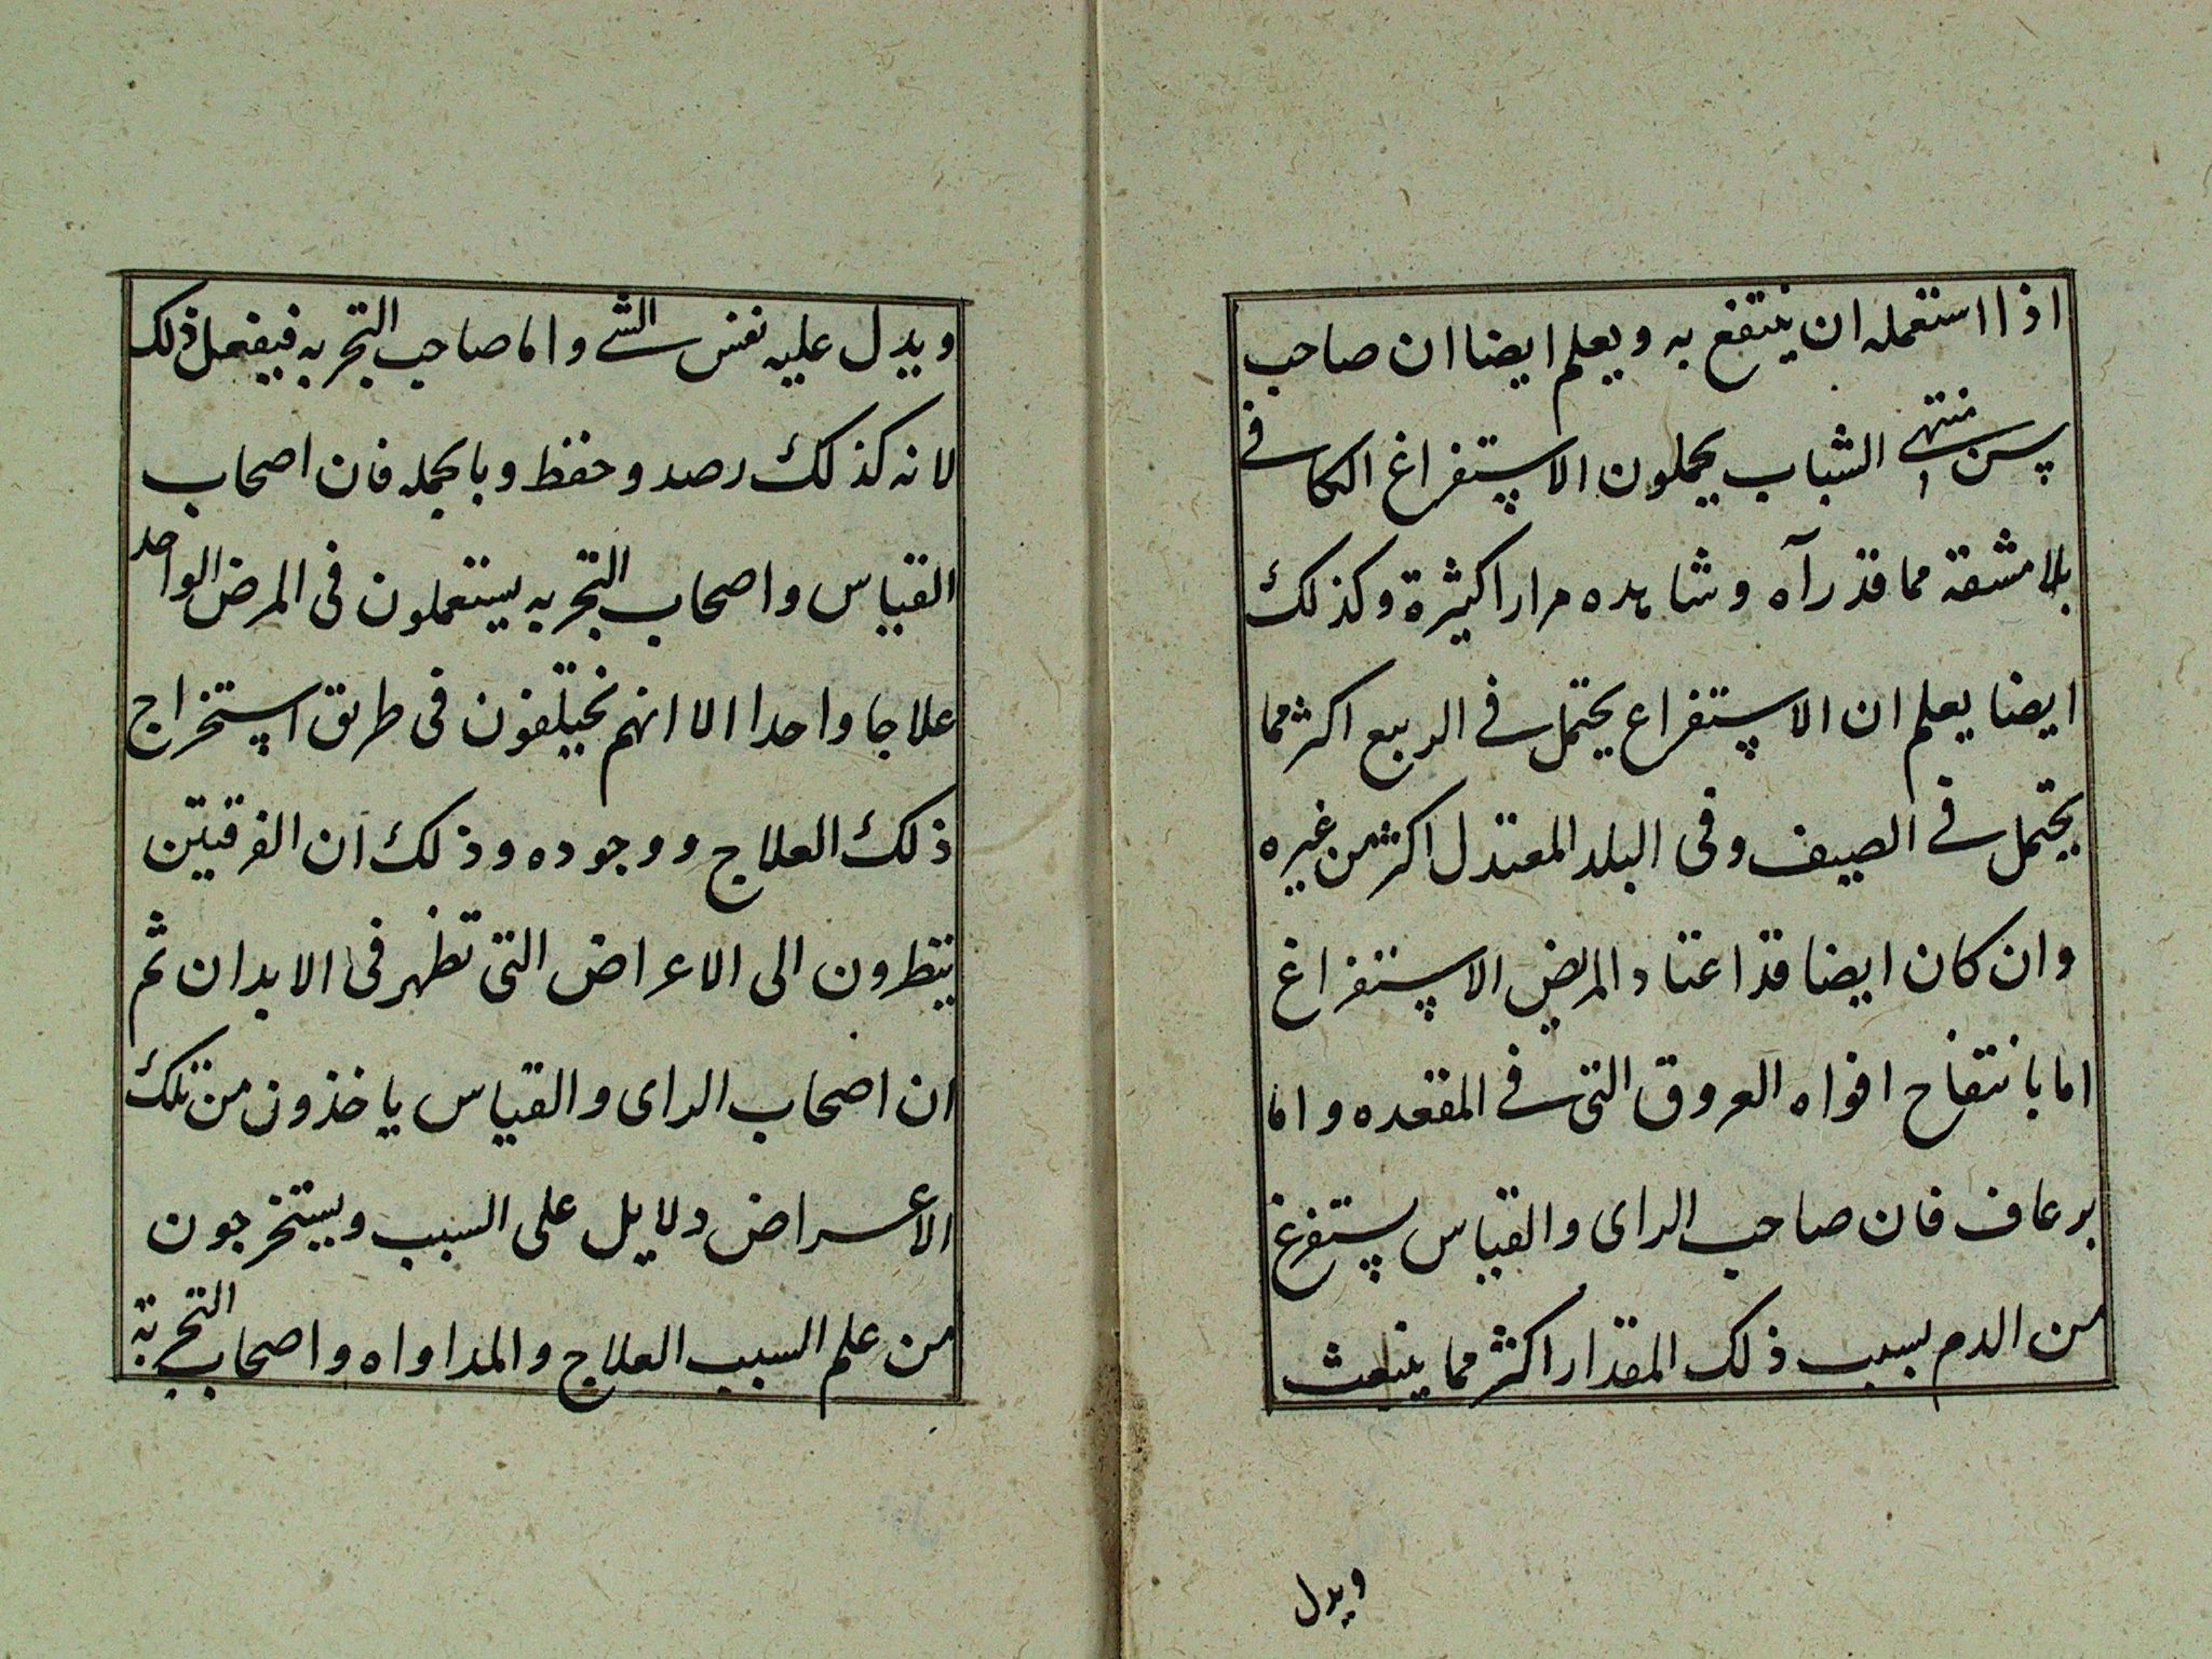 اذا استعمله ان ينتفع به ويعلم ايضا ان صاحب
سن منتهى الشباب يحملون الاستفراغ الكافى
بلا مشقة مما قد رآه وشاهده مرارا كثيرة وكذلك
ايضا يعلم ان الاستفراغ يحتمل فى الربيع اكثر مما
يحتمل فى الصيف وفى البلد المعتدل اكثر من غيره
وان كان ايضا قد اعتاد المريض الاستفراغ
اما بانتفاح افواه العروق التى فى المقعده واما
برعاف فان صاحب الراى والقياس يستفرغ
من الدم بسبب ذلك المقدار اكثر مما ينبعث
ويدل
ويدل عليه نفس الشى واما صاحب التجربه فيفعل ذلك
لانه كذلك رصد وحفظ وبالجمله فان اصحاب
القياس واصحاب التجربه يستعملون فى المرض الواحد
علاجا واحدا الا انهم يختلفون فى طريق استخراج
ذلك العلاج ووجوده وذلك ان الفرقتين
ينظرون الى الاعراض التى تظهر فى الابدان ثم
ان اصحاب الراى والقياس ياخذون من تلك
الاعراض دلايل على السبب ويستخرجون
من علم السبب العلاج والمداواه واصحاب التجربة